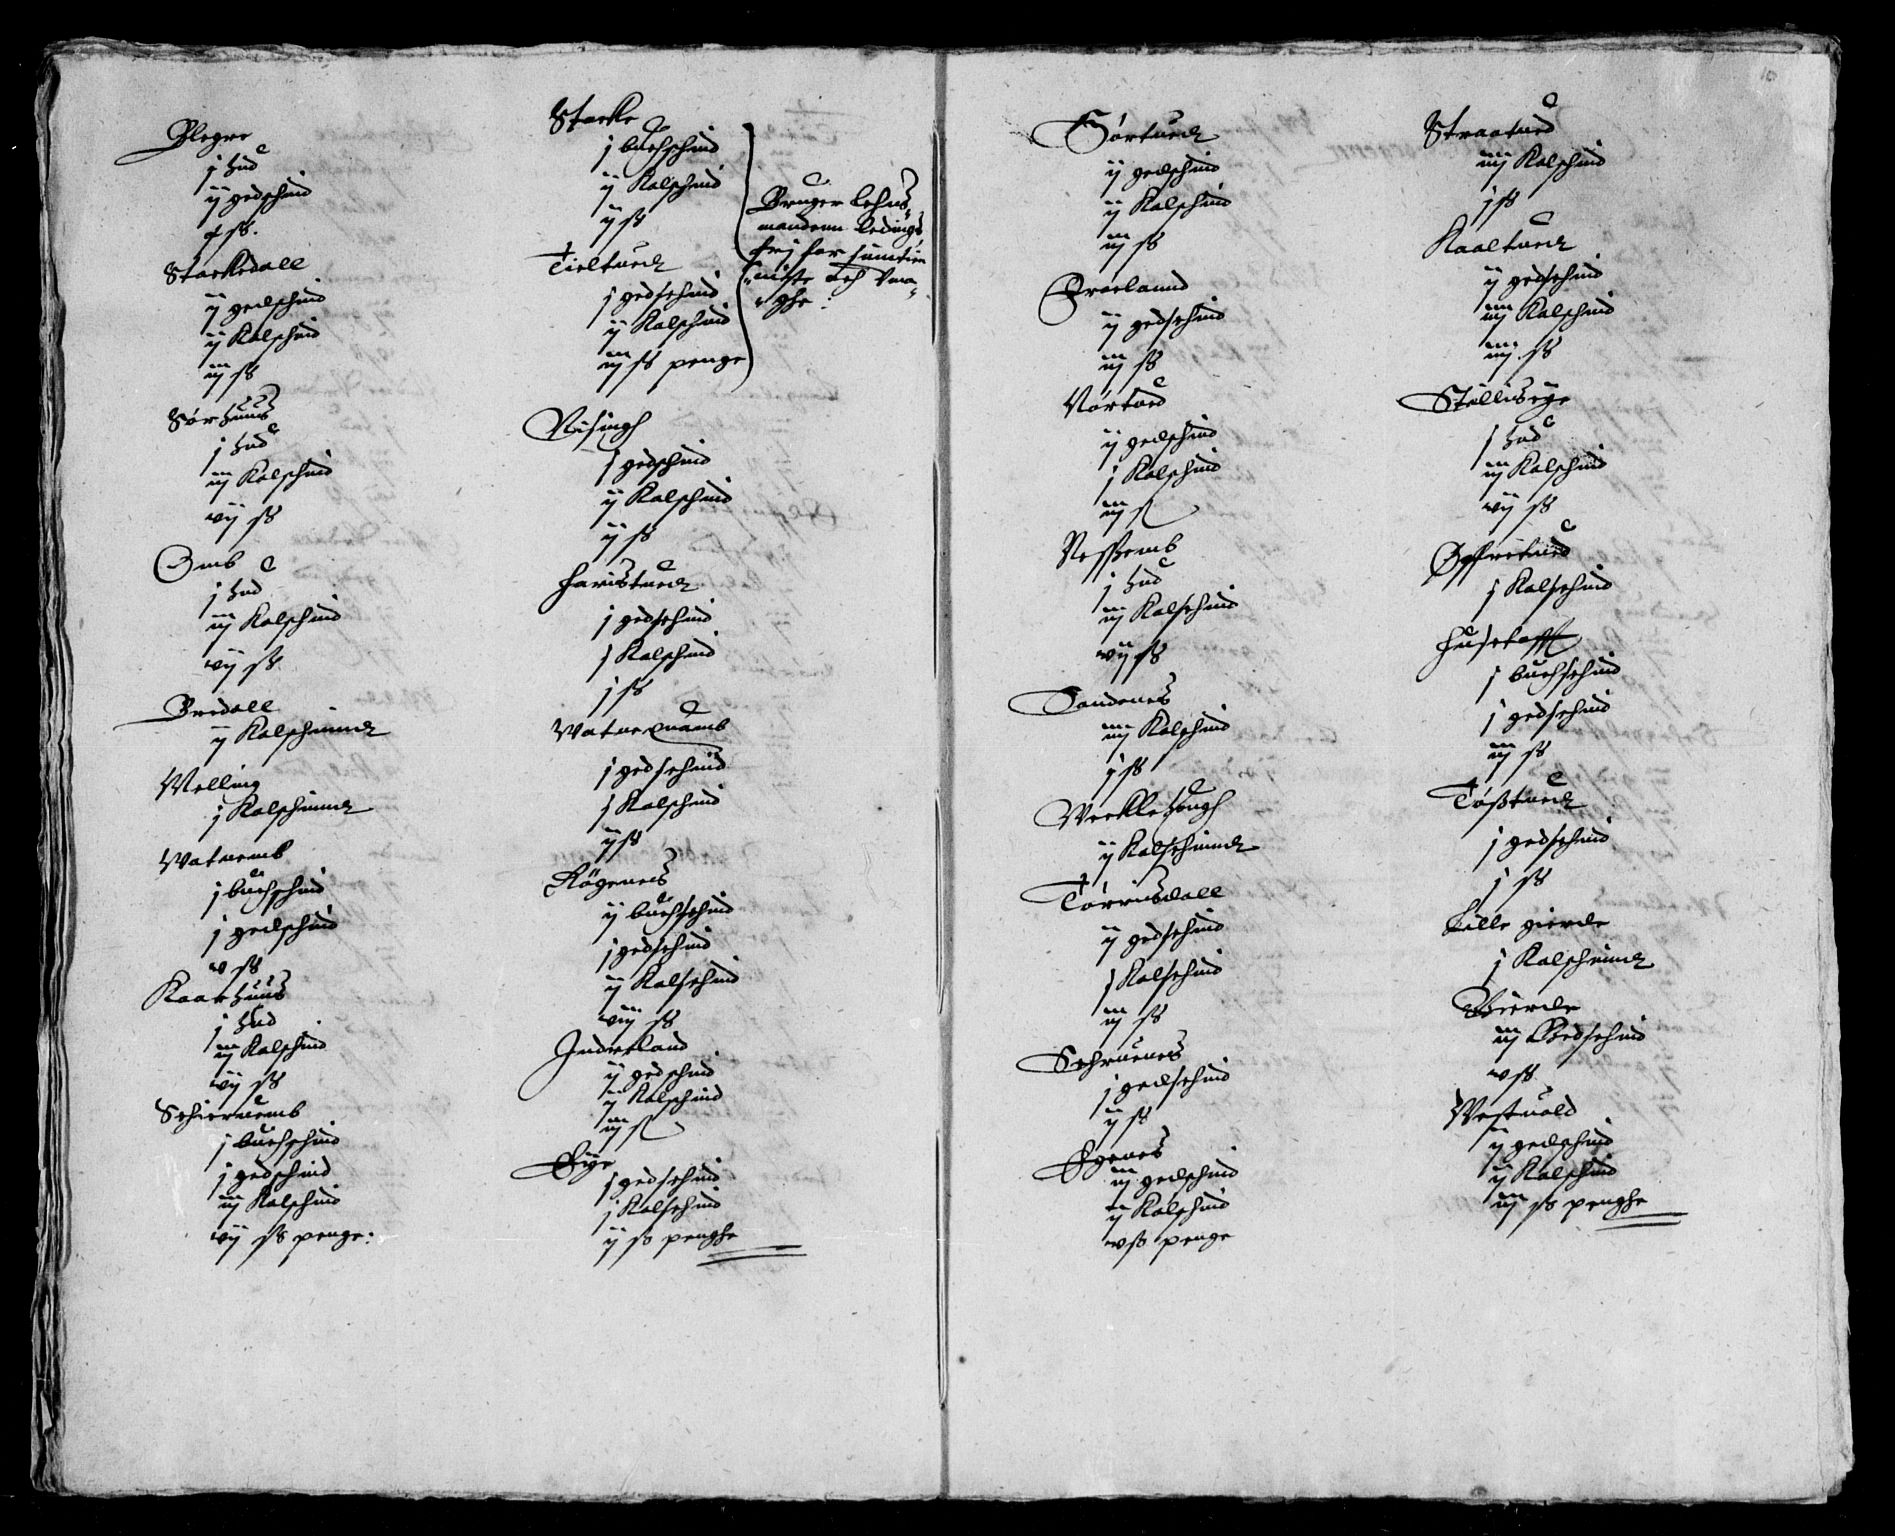 Blegre
j Hud
ij gedschind
ß.
Starkedall
ij gedschind
ij Kalschind
iij ß
Sørhuus
j Hud
iij Kalschind
vij ß
Omb
j Hud
iij Kalschind
vij ß
Bredall
ij Kalschinnd
Melling
j Kalschinnd
Watnemb
j buchschind
j gedschind
v ß
Kaarhuus
j Hud
iij Kalschind
vij ß
Schiernemb
j buchschind
j gedschind
iij Kalschind
vij ß penge:
Starke
j buchschind
ij Kalschind
ij ß
Tieltued
j gedschind
ij Kalschind
iij ß penge
Bruger Lehns
mandenn Ledings
frj for
och
Risingh
j gedschind
ij Kalschind
ij ß
Haristued
j gedschind
j Kalschind
j ß
Watnequamb
j gedschind
j Kalschind
ij ß
Høgenes
ij buchschind
j gedschind
ij Kalschind
viij ß
Indreland
ij gedschind
ij Kalschind
iij ß
Øye
j gedschind
j Kalschind
ij ß penghe
10
Sørtued
ij gedschind
ij Kalschind
iij ß
Frøeland
ij gedschind
iij ß
Nørtued
ij gedschind
j Kalschind
iij ß
Nessemb
j Hud
iij Kalschind
vij ß
Sandenes
iiij Kalschind
j ß
Mecklehough
ij Kalschinnd
Tørrisdall
ij gedschind
j Kalschind
iij ß
Schruenes
j gedschind
ij ß
Egenes
iij gedschind
ij Kalschind
v ß penge
Straatued
iiij Kalschind
j ß
Kaaltued
ij gedschind
iiij Kalschind
iiij ß
Stellisøye
j Hud
iij Kalschind
vij ß
Øffretued
j Kalschind
Husetofft
j buchschind
j gedschind
iij ß
Tøßtued
j gedschind
j ß
Lille gierde
j Kalschinnd
Gierde
iij Gedschind
v ß
Westuold
ij gedschind
ij Kalschind
iij ß penghe